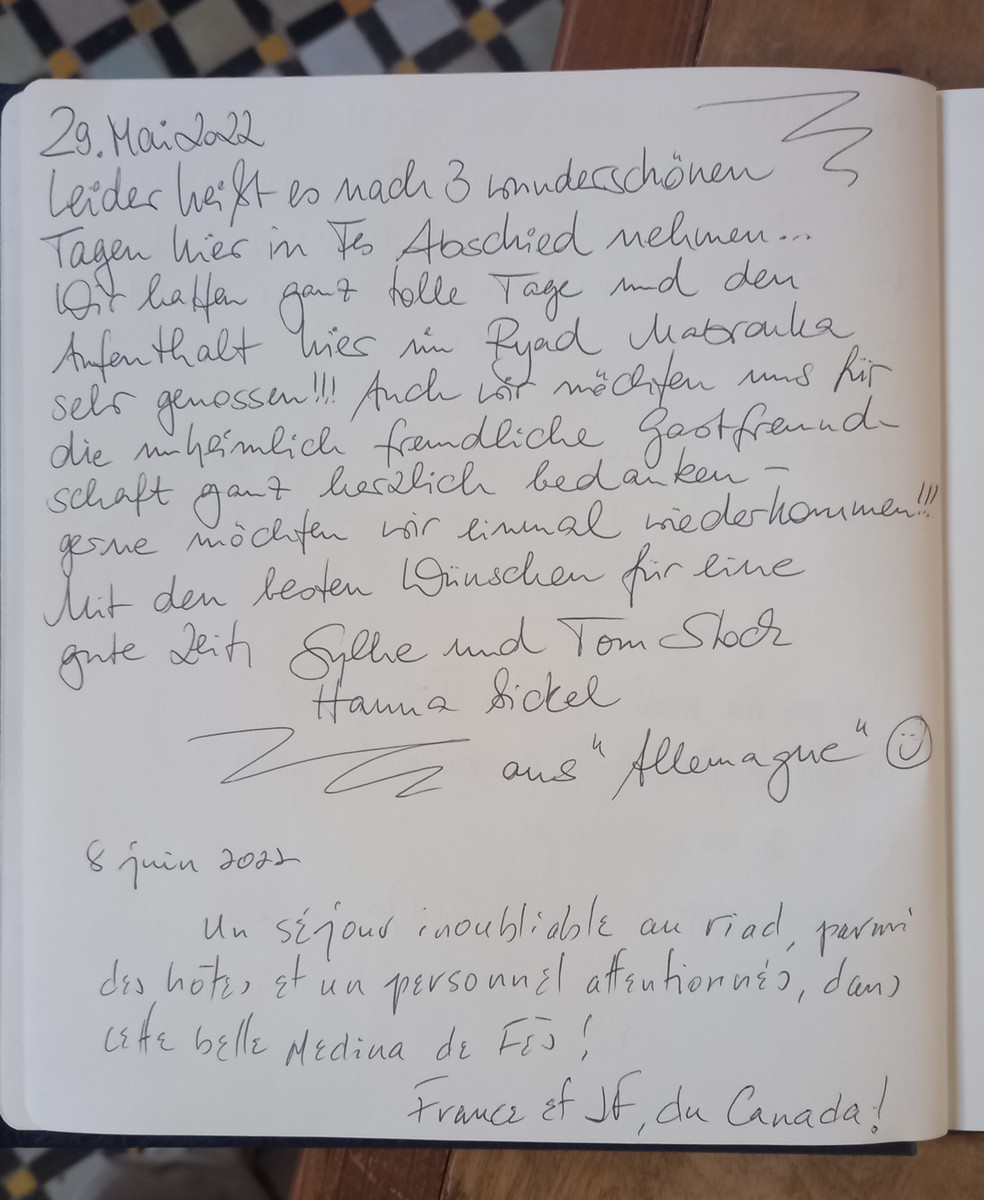 29. Mai 2022
Leider heißt es nach 3 wunderschönen
Tagen hier in Fes Abschied nehmen...
Wir hatten ganz tolle Tage und den
Aufenthalt hier im Ryad Mabrouka
sehr genossen!!! Auch wir möchten uns für
die unheimlich freundliche Gastfreund-
schaft ganz herzlich bedanken –
gerne möchten wir einmal wiederkommen!!!
Mit den besten Wünschen für eine
gute Zeit, Sylke und Tom Stock
Hanna Sickel
aus "Allemagne"
8 juin 2022
Un séjour inoubliable au riad, parmi
des hôtes et un personnel attentionnés, dans
cette belle Medina de Fès!
France et JF, du Canada!